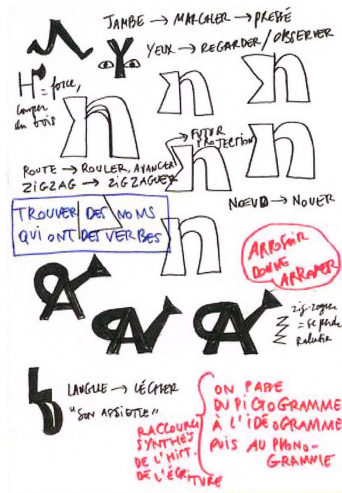 JAMBE → MARCHER → PRESSÉ
YEUX → REGARDER/OBSERVER
H = force,
couper
du bois
n
n
n
→ FUTUR
PROJECTION
n
n
ROUTE → ROULER, AVANCER
ZIGZAG → ZIGZAGUER
NŒUD → NOUER
n
TROUVER DES NOMS
QUI ONT DES VERBES
ARROSOIR
DONNE
ARROSER
zig-zaguer
= se perdre
Ralentir
LANGUE → LÉCHER
"SON ASSIETTE"
RACCOURCI
SYNTHÈS
DE L'HIST.
DE L'ÉCRITURE
ON PASSE
DU PICTOGRAMME
À L'IDÉOGRAMME
PUIS AU PHONO-
GRAMME